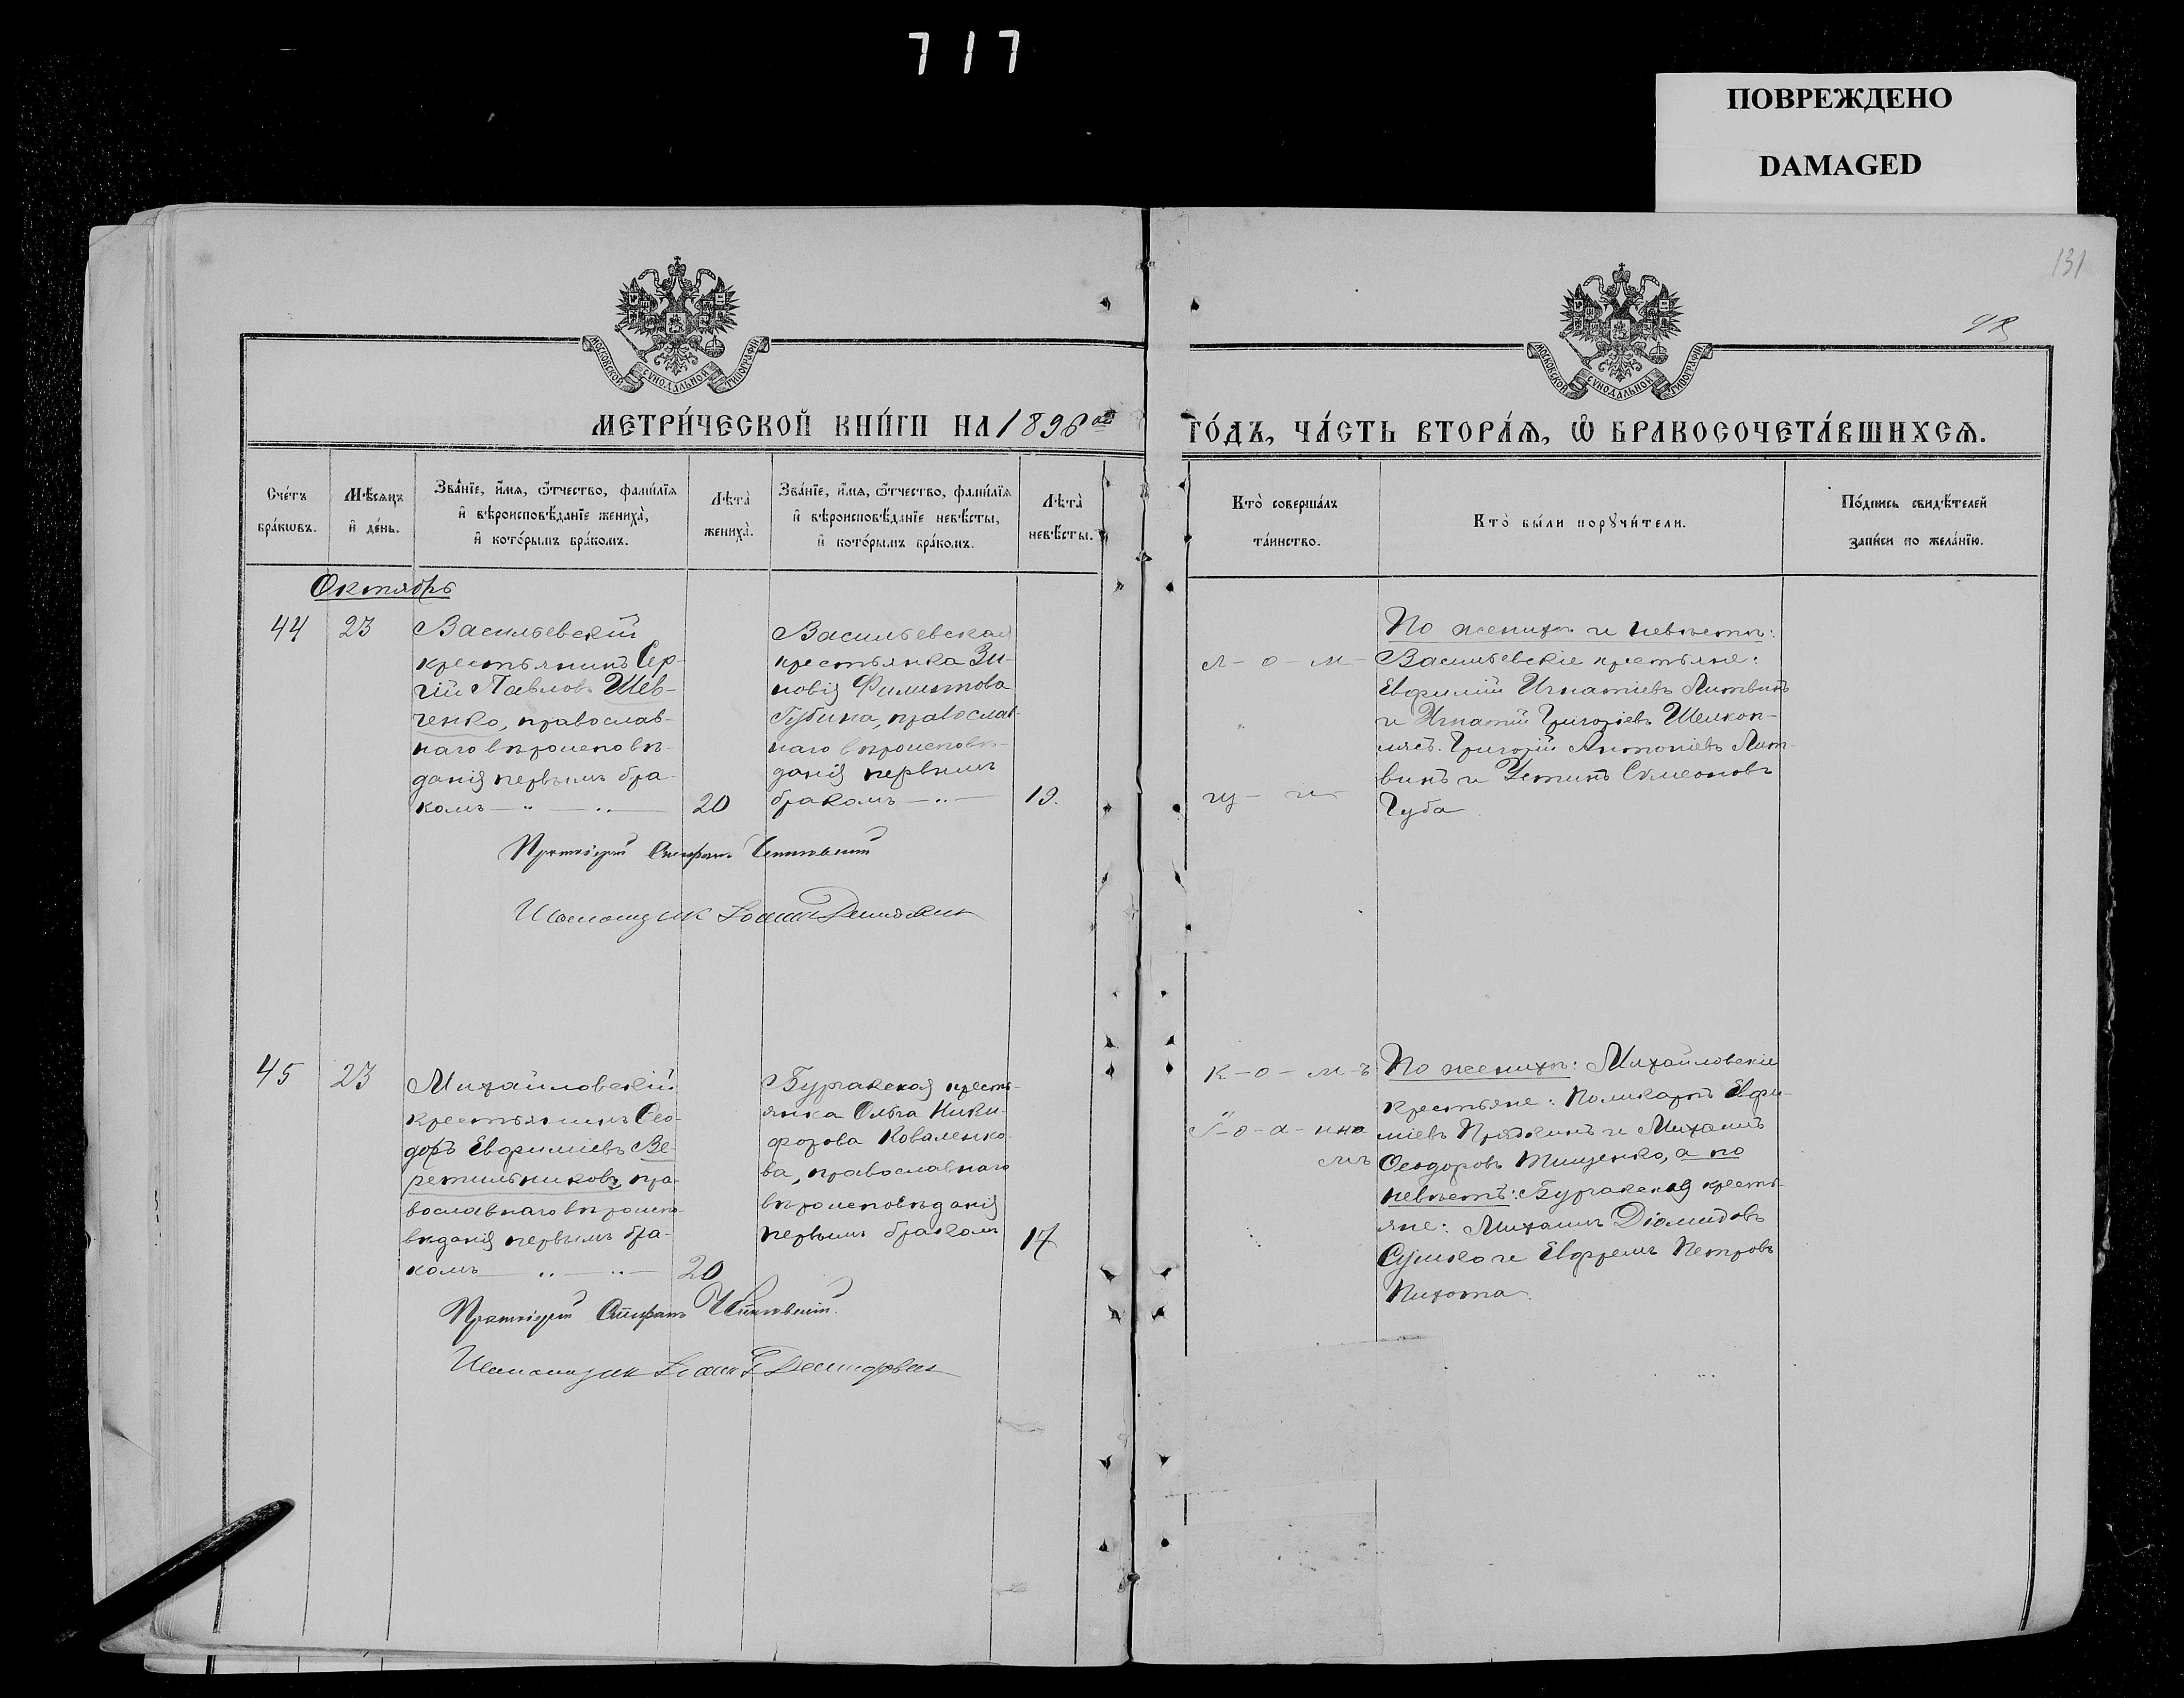 717
ПОВРЕЖДЕНО
DAMAGED
131
МОСКОВСКОЙ СѴНОДАЛЬНОЙ ТИПОГРАФІИ
МОСКОВСКОЙ СѴНОДАЛЬНОЙ ТИПОГРАФІИ
МЕТРИ́ЧЕСКОЙ КНИ́ГИ НА 1896 ой
ГО́ДЪ, ЧА́СТЬ ВТОРА́Ѧ, Ѡ҆ БРАКОСОЧЕТА́ВШИХСѦ.
Сче́тъ
бра́кѡвъ.
Мѣ́сѧцъ
и҆ де́нь.
Зва́нїе, и҆́мѧ, ѻ҆́тчество, фами́лїѧ
и҆ вѣроисповѣ́данїе жениха̀,
и҆ кото́рымъ бра́комъ.
Лѣта̀
жениха̀.
Зва́нїе, и҆́мѧ, ѻ҆́тчество, фами́лїѧ
и҆ вѣроисповѣ́данїе невѣ́сты,
и҆ кото́рымъ бра́комъ.
Лѣта̀
невѣ́сты.
Кто̀ соверша́лъ
та́инство.
Кто̀ бы́ли порꙋчи́тели.
По́дпись свидѣ́телей
за́писи по жела́нїю.
Октябрь
44
23
Васильевскій
крестьянинъ Сер-
гій Павловъ Шев-
ченко, православ-
наго вѣроисповѣ-
данія первымъ бра-
комъ — " — " —
20
Васильевская
крестьянка Зи-
новія Филиппова
Губина, православ-
наго вѣроисповѣ-
данія первымъ
бракомъ — " —
19.
По женихѣ и невѣстѣ:
Васильевскіе крестьяне:
Евфимій Игнатіевъ Литвинъ
и Игнатій Григоріевъ Шелкоп-
лясъ. Григорій Антоніевъ Лит-
винъ и Устинъ Симеоновъ
Губа
Протоіерей
45
23
Михайловскій
крестьянинъ Ѳео-
доръ Евфиміевъ Ве-
ретильниковъ, пра-
вославнаго вѣроиспо-
вѣданія первымъ бра-
комъ — " — " —
20
Бургакская кресть-
янка Ольга Ники-
форова Коваленко-
ва, православнаго
вѣроисповѣданія
первымъ бракомъ
17
к - о - м - ъ
По женихѣ: Михайловскіе
крестьяне: Поликарпъ Евфи-
міевъ и Михаилъ
Ѳеодоровъ Тищенко, а по
невѣстѣ: Бургакская кресть-
яне: Михаилъ Діомидовъ
Сушко и Евфремъ Петровъ
Пихота.
Протоіерей